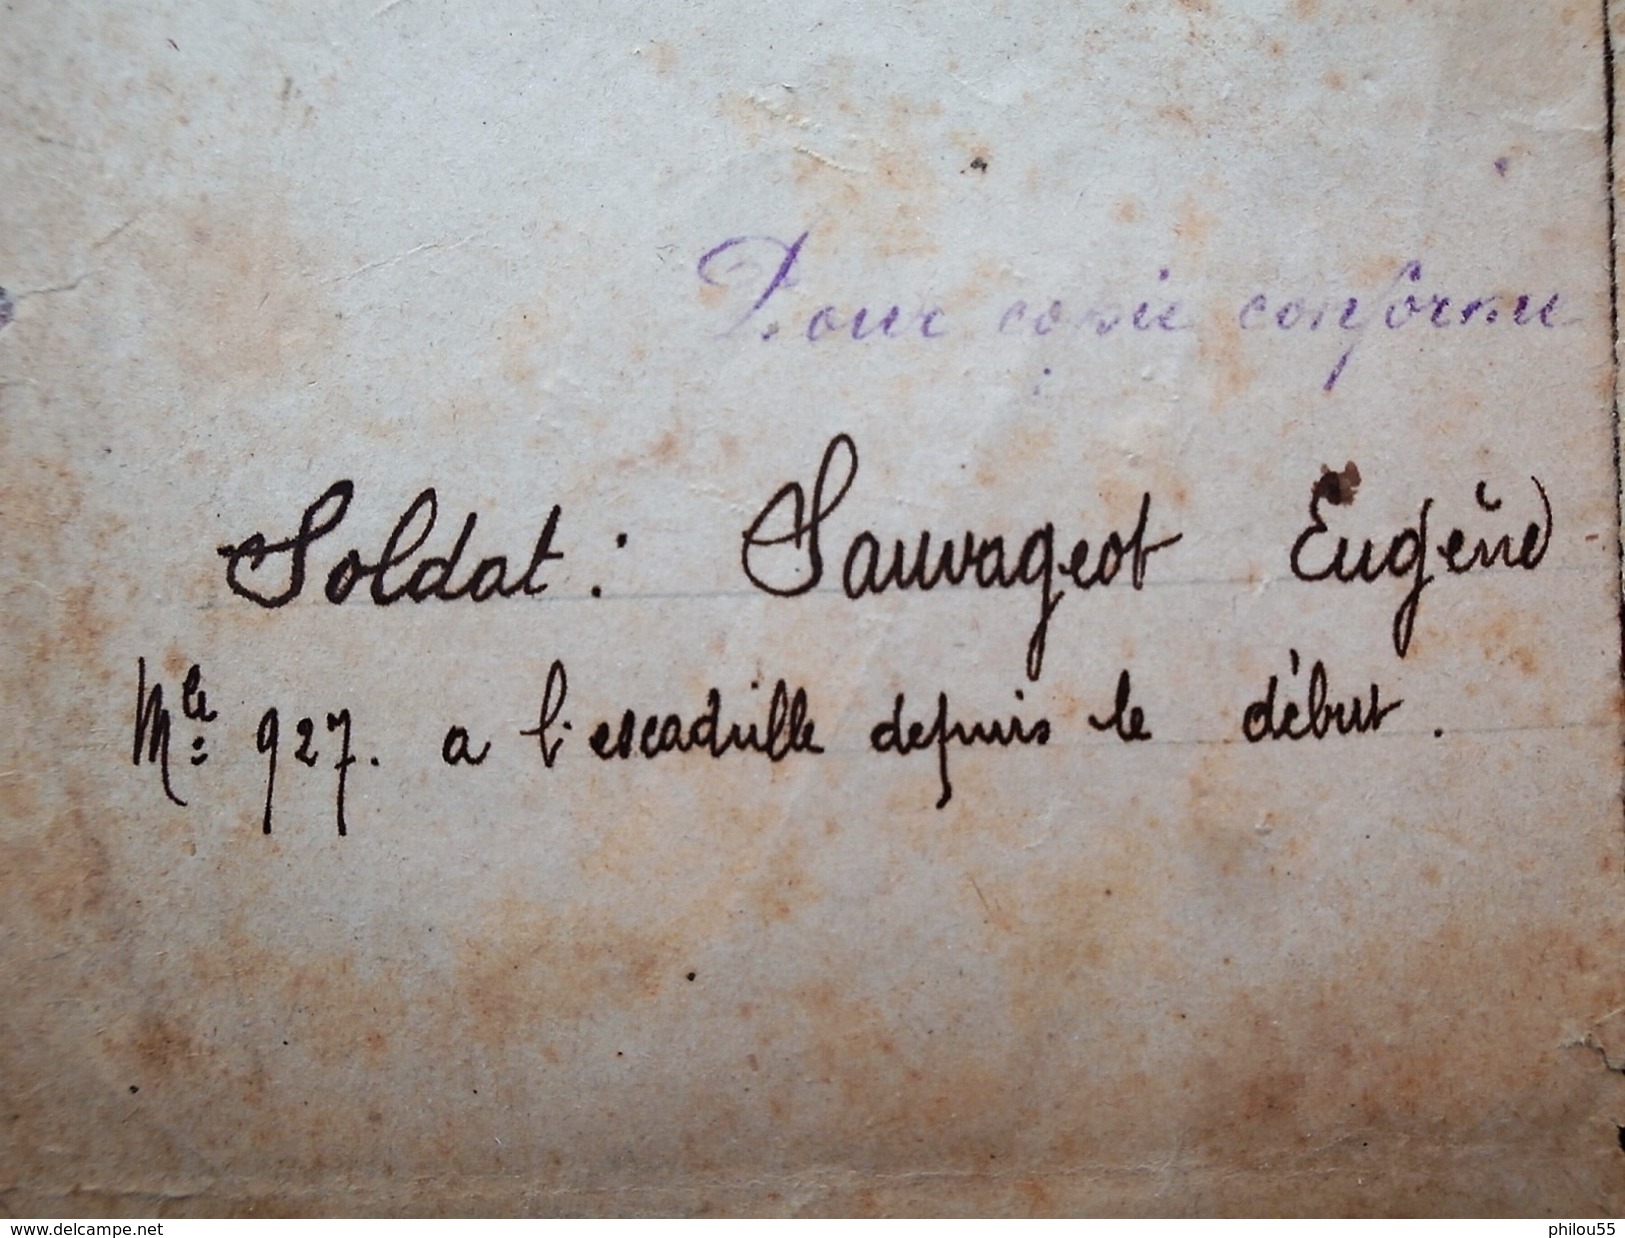 Pour copie conforme
Soldat : Sauvageot Eugène
Mle 927. a l'escadrille depuis le début.
www.delcampe.net
philou55